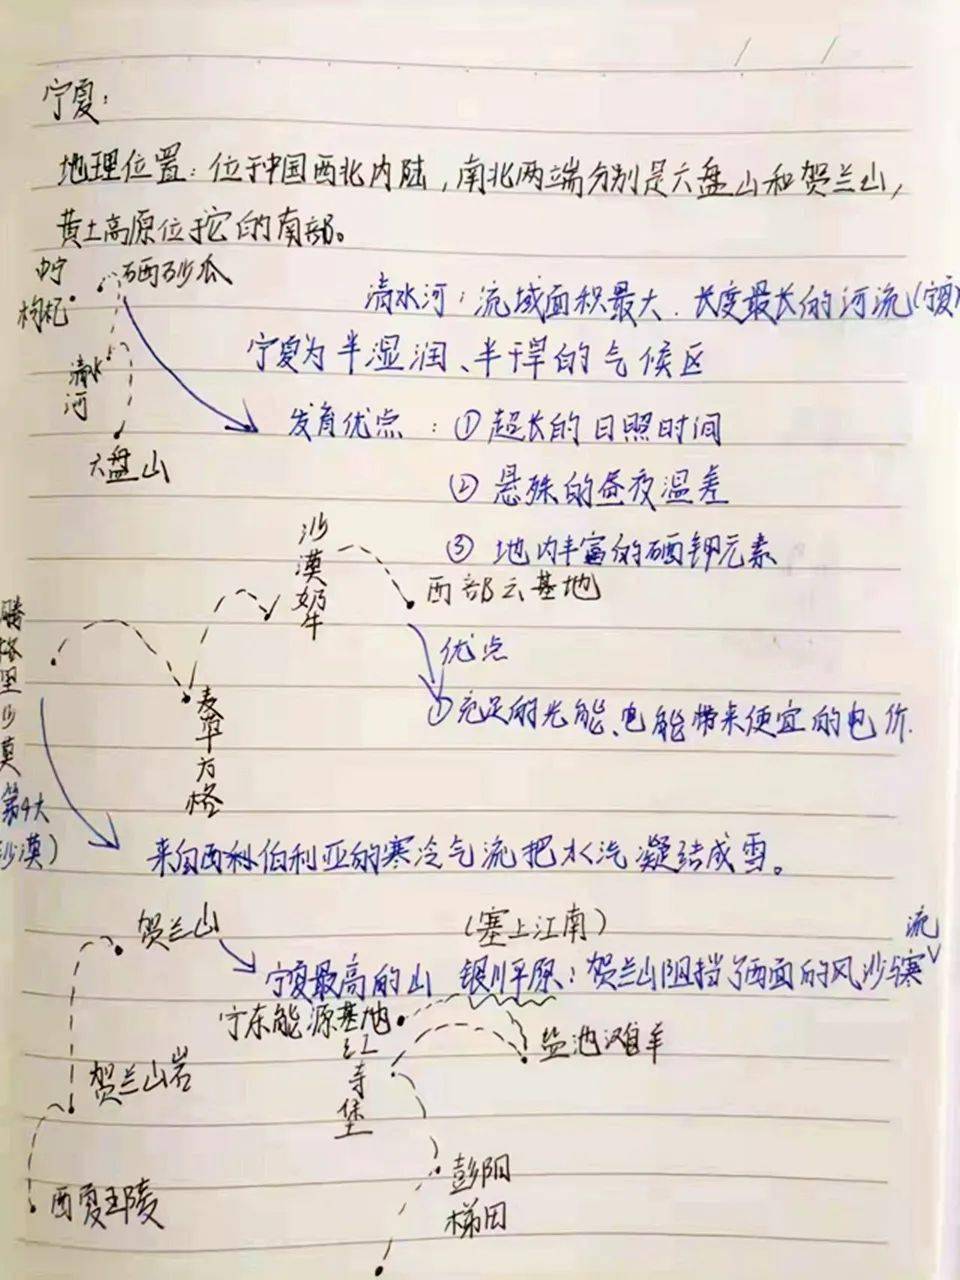 宁夏：
地理位置：位于中国西北内陆，南北两端分别是六盘山和贺兰山，
黄土高原位于它的南部。
中宁枸杞
硒砂瓜
清水河：流域面积最大、长度最长的河流（宁夏）
宁夏为半湿润、半干旱的气候区
清水河
发育优点：①超长的日照时间
六盘山
②悬殊的昼夜温差
③地内丰富的硒钾元素
沙漠奶牛
西部云基地
优点
①充足的光能、电能带来便宜的电价.
腾格里沙漠
第4大沙漠）
麦草方格
来自西利伯利亚的寒冷气流把水汽凝结成雪。
贺兰山
（塞上江南）
宁夏最高的山
银川平原：贺兰山阻挡了西面的风沙与寒流
宁东能源基地
盐池滩羊
红寺堡
贺兰山岩
彭阳梯田
西夏王陵